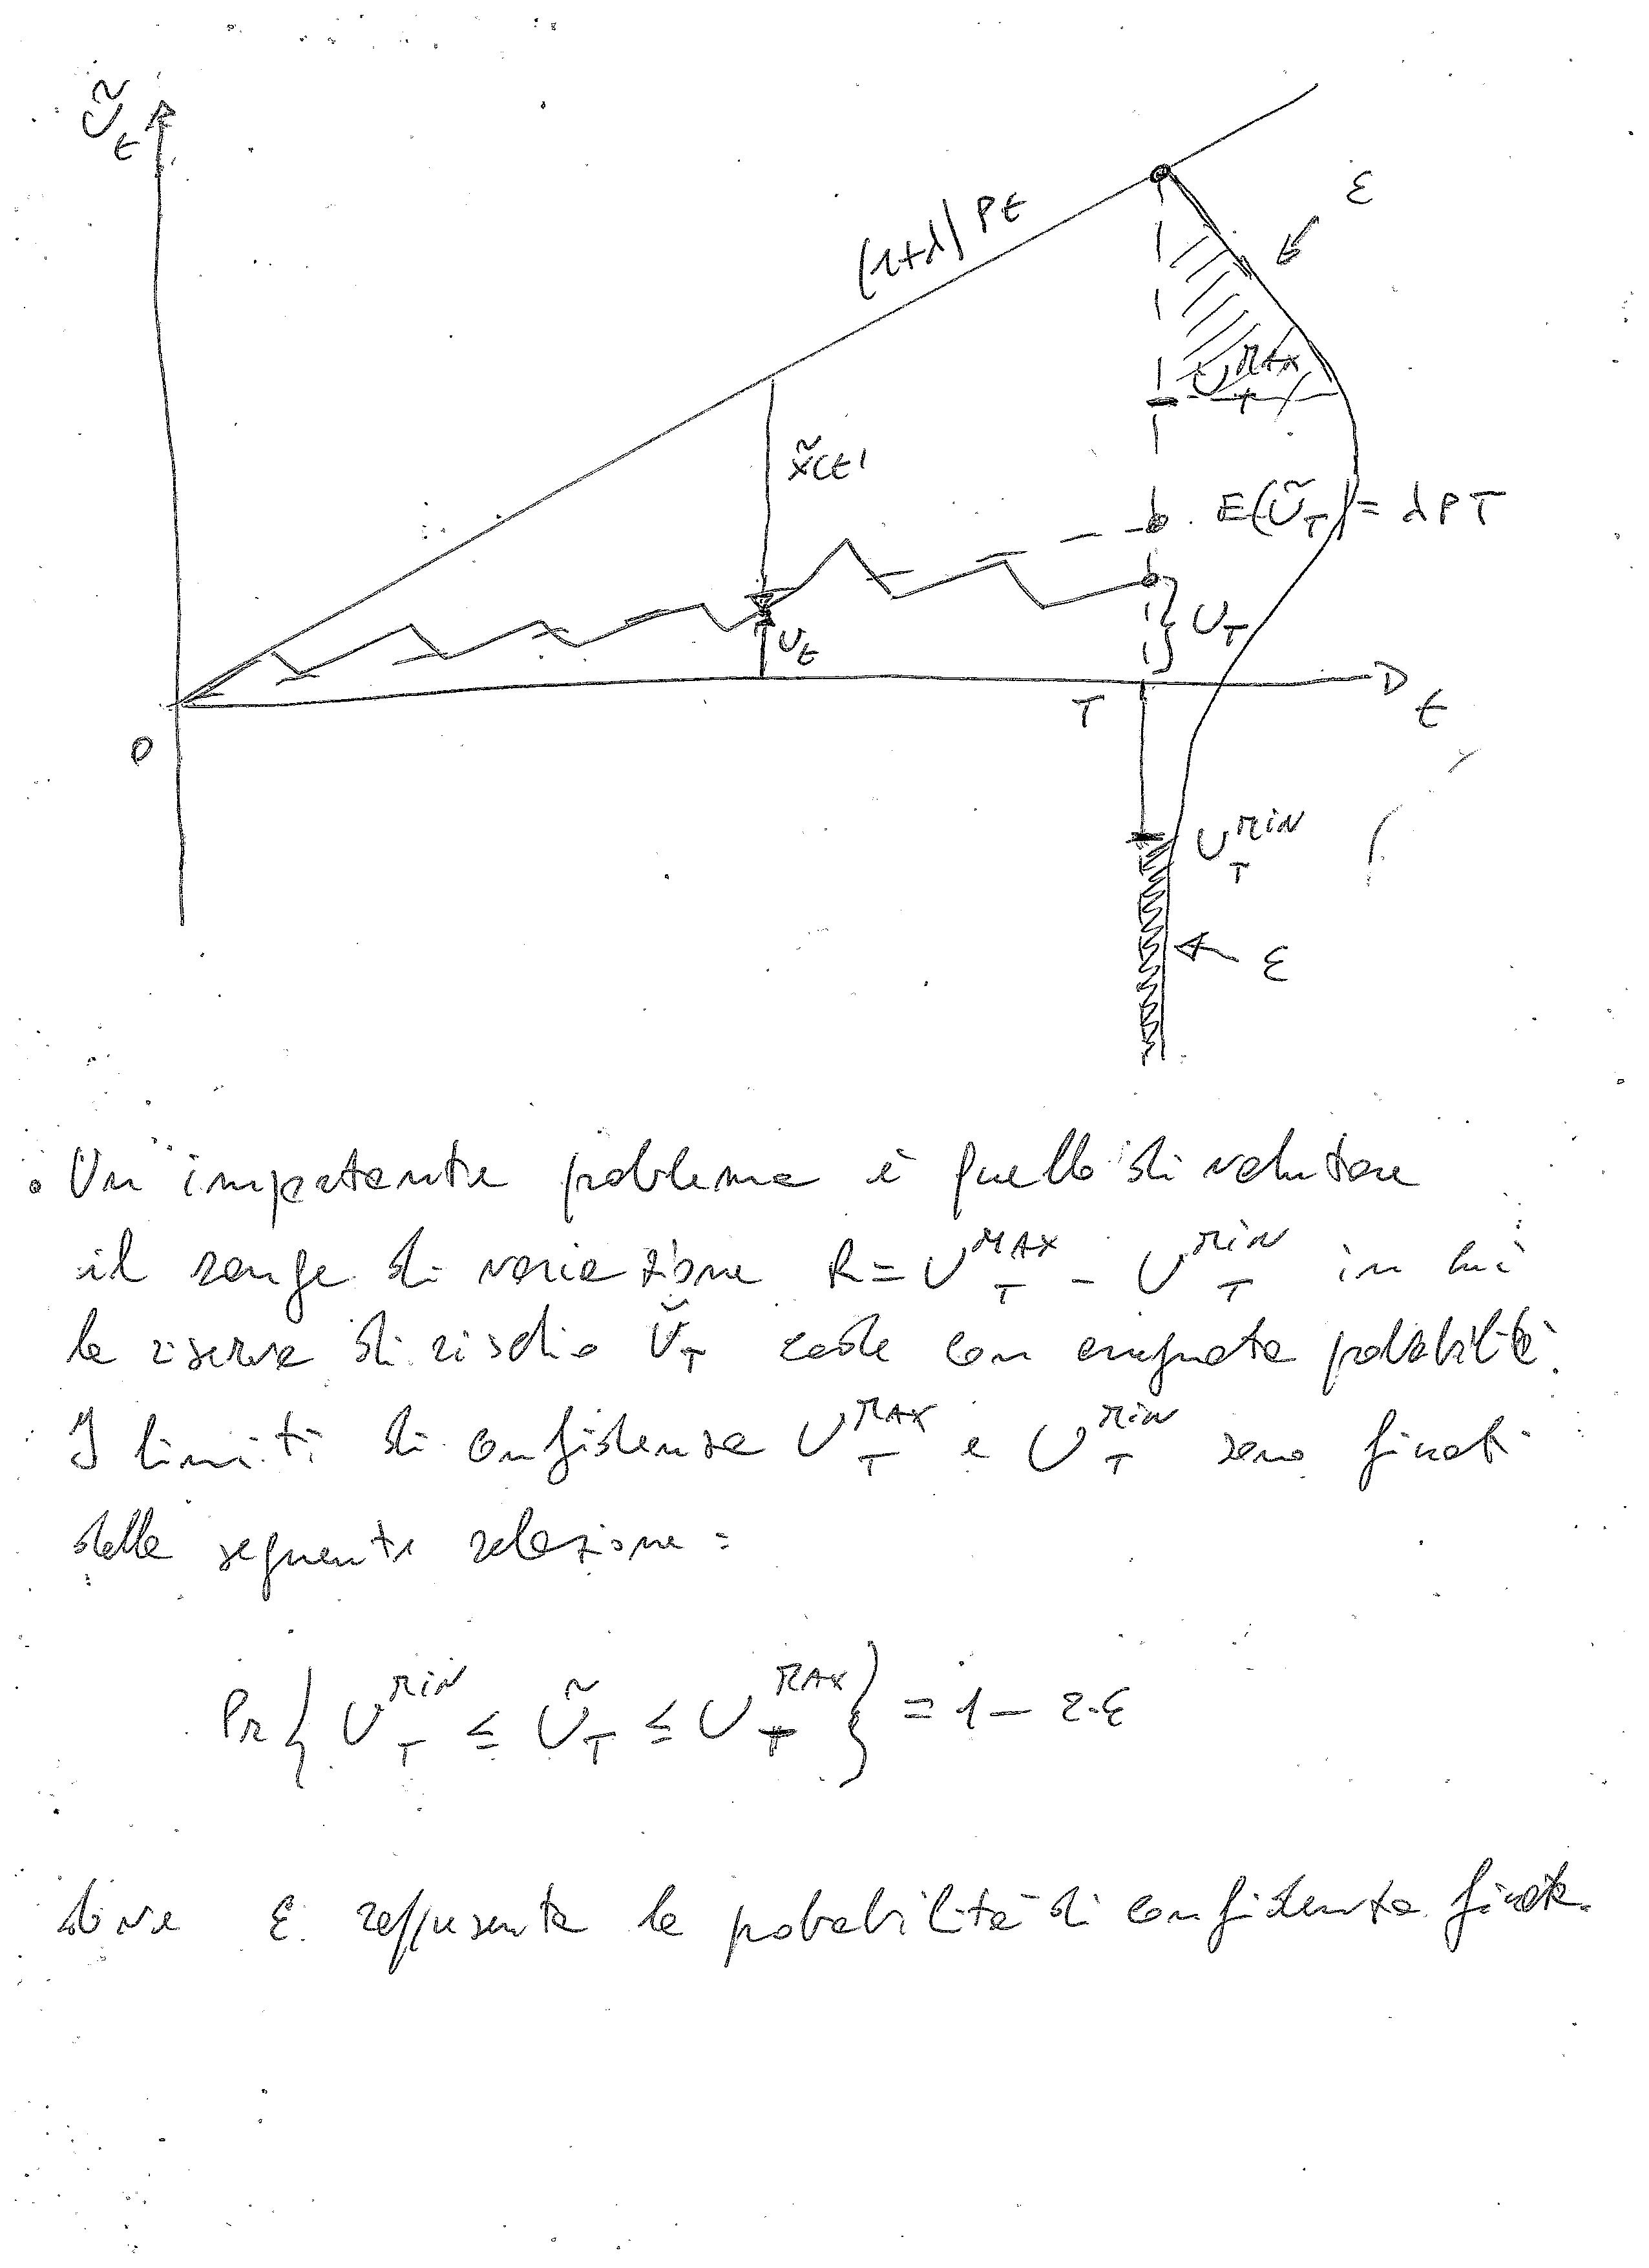 Ũ_t
(1+λ) P t
ε
x̃(t)
U_T^MAX
E(Ũ_T) = λ P T
U_t
U_T
0
T
t
U_T^MIN
ε
• Un importante problema è quello di valutare
il range di variazione R = U_T^MAX - U_T^MIN in cui
la riserva di rischio Ũ_T cade con assegnata probabilità.
I limiti di confidenza U_T^MAX e U_T^MIN sono fissati
dalla seguente relazione:
Pr{ U_T^MIN ≤ Ũ_T ≤ U_T^MAX } = 1 - 2·ε
dove ε rappresenta la probabilità di confidenza fissata.